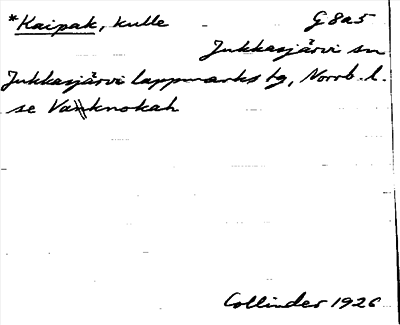 *Kaipak, kulle G8a5
Jukkasjärvi sn
Jukkasjärvi lappmarks tg, Norrb. l.
se Vanknokah
Collinder 1926